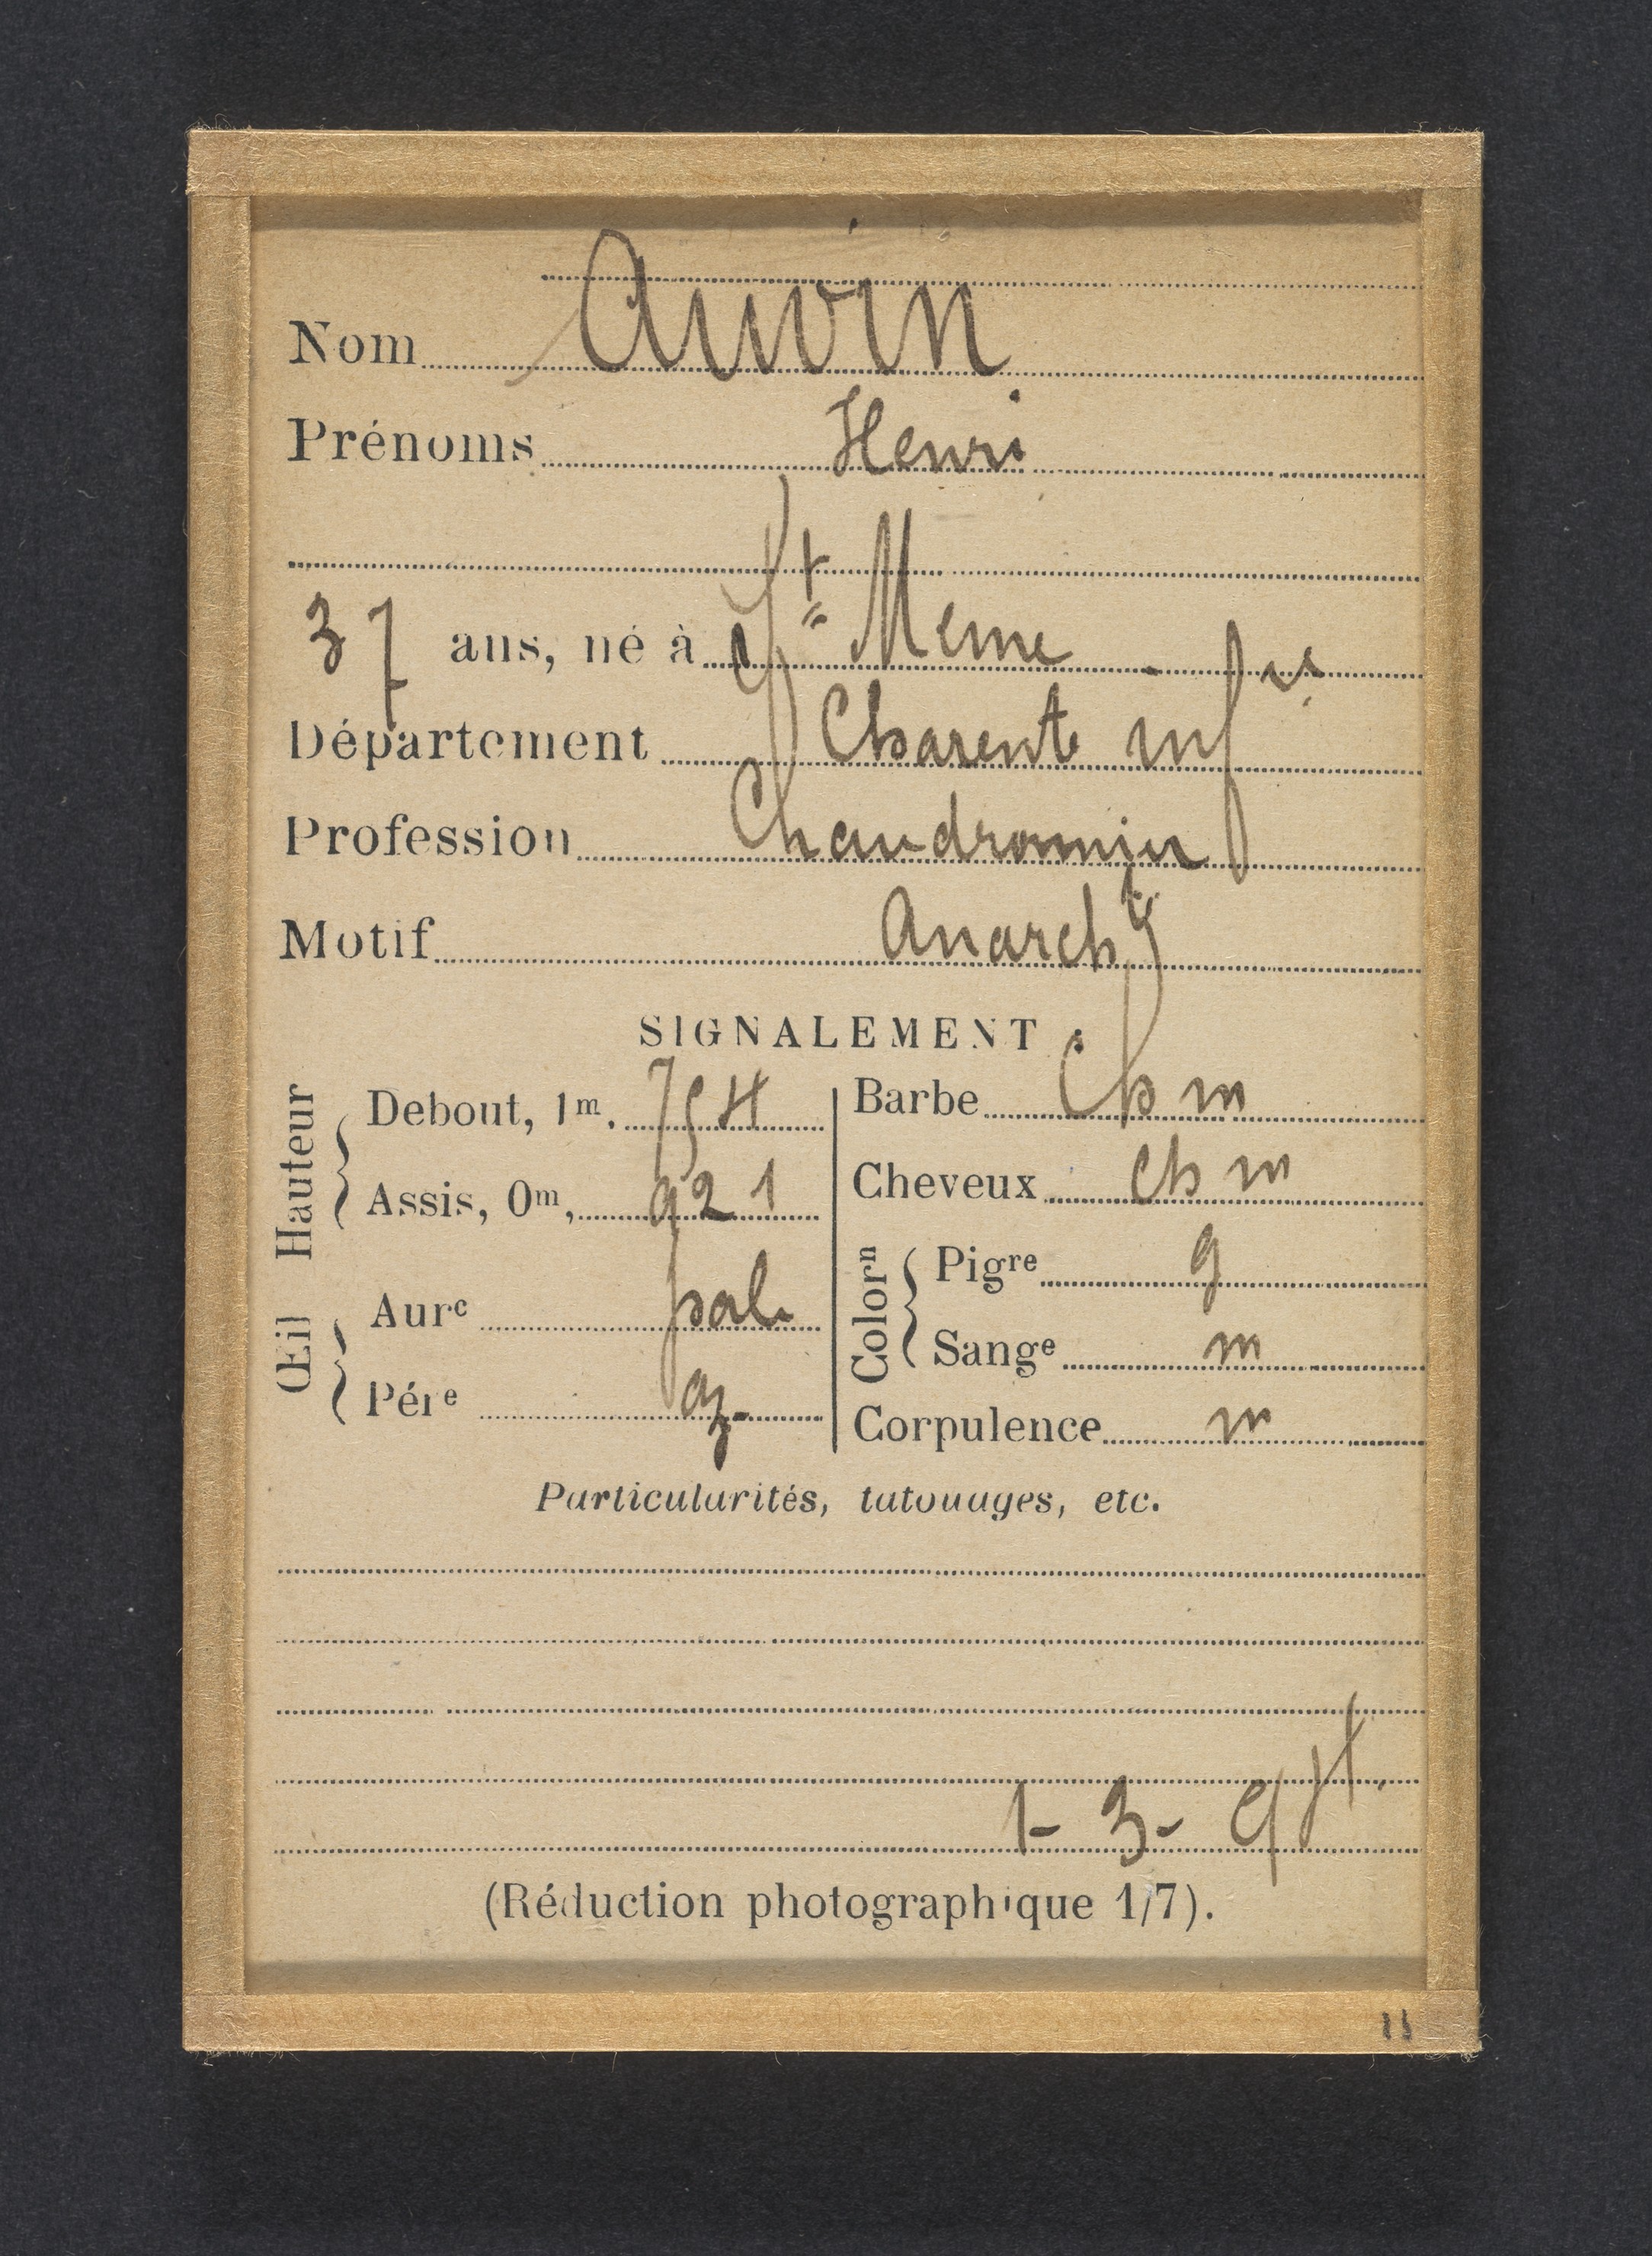 Nom Auvin
Prénoms Henri
37 ans, né à St Meme
Département Charente infre
Profession Chaudronnier
Motif Anarchte
SIGNALEMENT
Hauteur
Debout, 1m, 754
Assis, 0m, 921
Œil
Aure pal.
Pére az.
Barbe ch m
Cheveux ch m
Colorn
Pigre g
Sange m
Corpulence m
Particularités, tatouages, etc.
1- 3- 94.
(Réduction photographique 1/7).
11